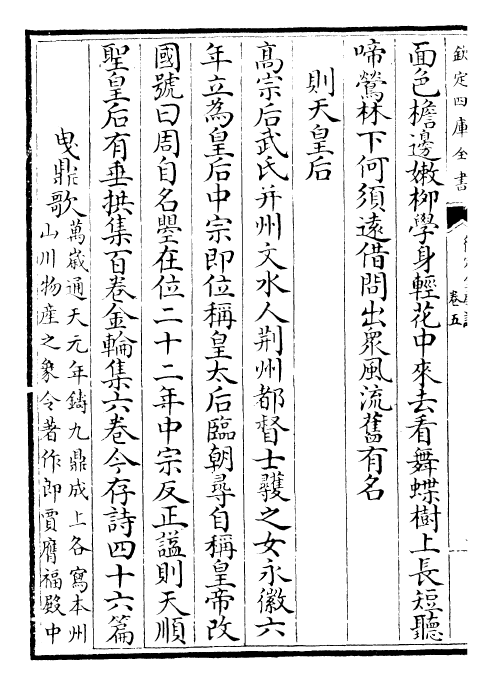 欽定四庫全書
卷五
面色檐邊嫩栁學身輕花中來去看舞蝶樹上長短聽
啼鶯林下何須遠借問出衆風流舊有名
則天皇后
髙宗后武氏并州文水人荆州都督士彠之女永徽六
年立為皇后中宗即位稱皇太后臨朝尋自稱皇帝改
國號曰周自名曌在位二十二年中宗反正諡則天順
聖皇后有垂拱集百卷金輪集六卷今存詩四十六篇
曳鼎歌
萬嵗通天元年鑄九鼎成上各寫本州
山川物産之象令著作郎賈膺福殿中